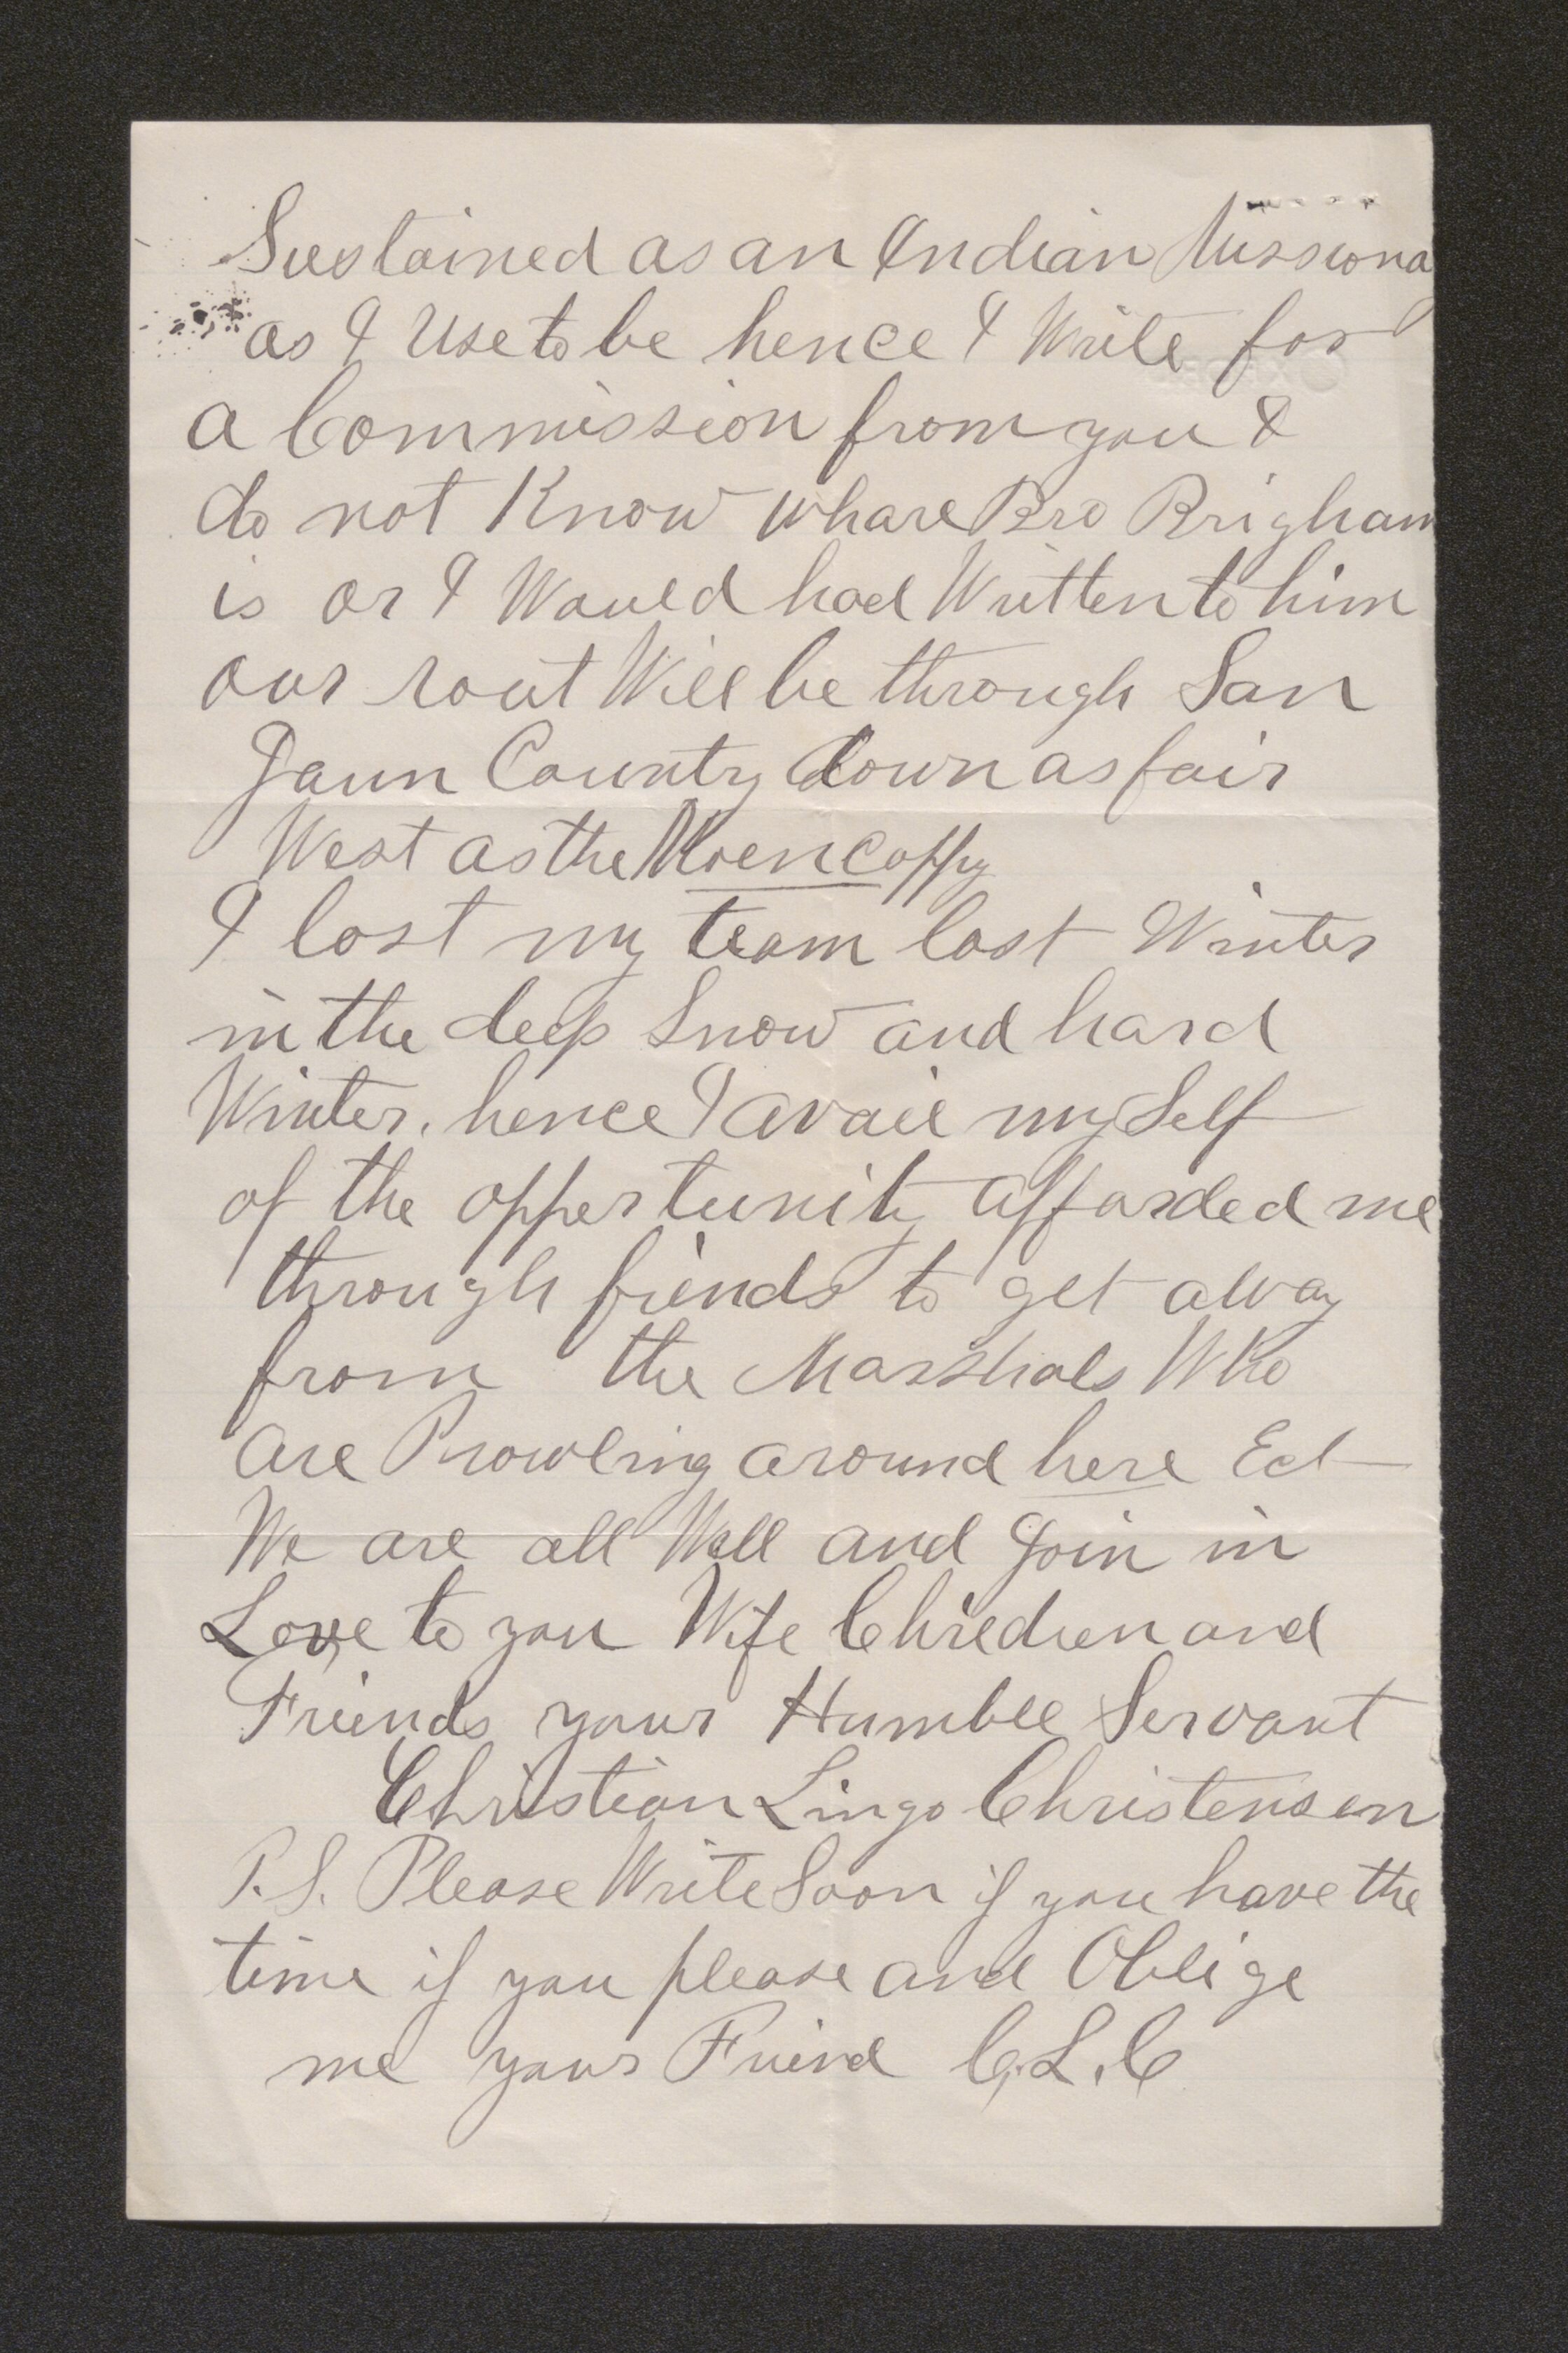 Sustained as an Indian Missiona
as I Use to be hence I Write for
a Commission from you &
do not Know whare Bro Brigham
is or I Would had Written to him
our rout Will be through San
Jaun County down as fair
West as the Moencoppy
I lost my team last Winter
in the deep Snow and hard
Winter. hence I avail my Self
of the oppertunity afforded me
through friends to get away
from the Marshals Who
are Prowling around here Ect
We are all Well and Join in
Love to you Wife Children and
Friends your Humble Servant
Christian Lingo Christensen
P.S. Please Write Soon if you have the
time if you please and Oblige
me your Friend C. L. C